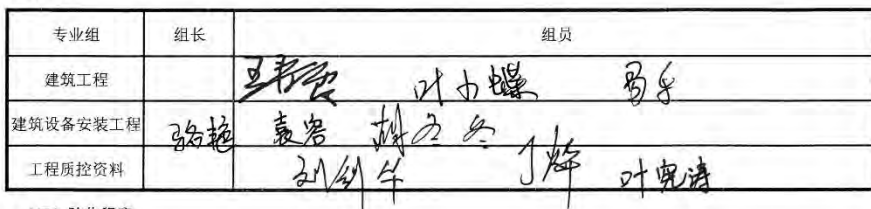 专业组 组长 组员
建筑工程 叶小蝶 易乐
建筑设备安装工程 骆艳 袁容 胡冬冬
工程质控资料 刘剑华 丁辉 叶宪涛